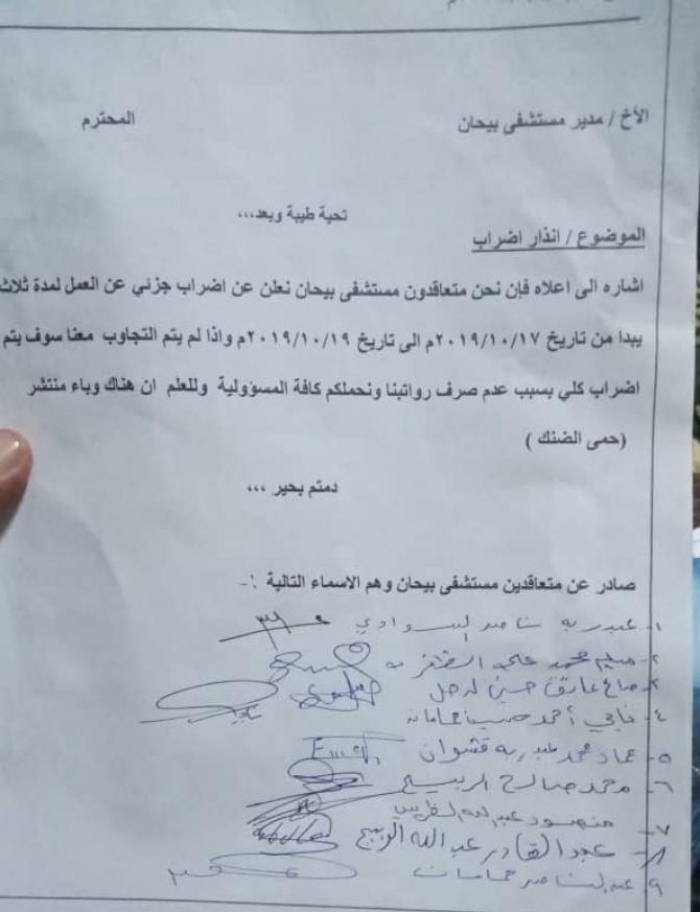 الأخ / مدير مستشفى بيحان المحترم
تحية طيبة وبعد،،،
الموضوع / انذار اضراب
اشاره الى اعلاه فإن نحن متعاقدون مستشفى بيحان نعلن عن اضراب جزئي عن العمل لمدة ثلاث
يبدا من تاريخ ٢٠١٩/١٠/١٧م الى تاريخ ٢٠١٩/١٠/١٩م واذا لم يتم التجاوب معنا سوف يتم
اضراب كلي بسبب عدم صرف رواتبنا ونحملكم كافة المسؤولية وللعلم ان هناك وباء منتشر
(حمى الضنك )
دمتم بحير ،،،
صادر عن متعاقدين مستشفى بيحان وهم الاسماء التالية :-
١- عبدربه ناصر
٢- محمد علي
٣- صالح حسين
٤- أحمد
٥- عماد محمد عبدربه قشوان
٦- محمد صالح الربيع
٧- منصور عبدالله
٨- عبدالقادر عبدالله الربيع
٩- ناصر